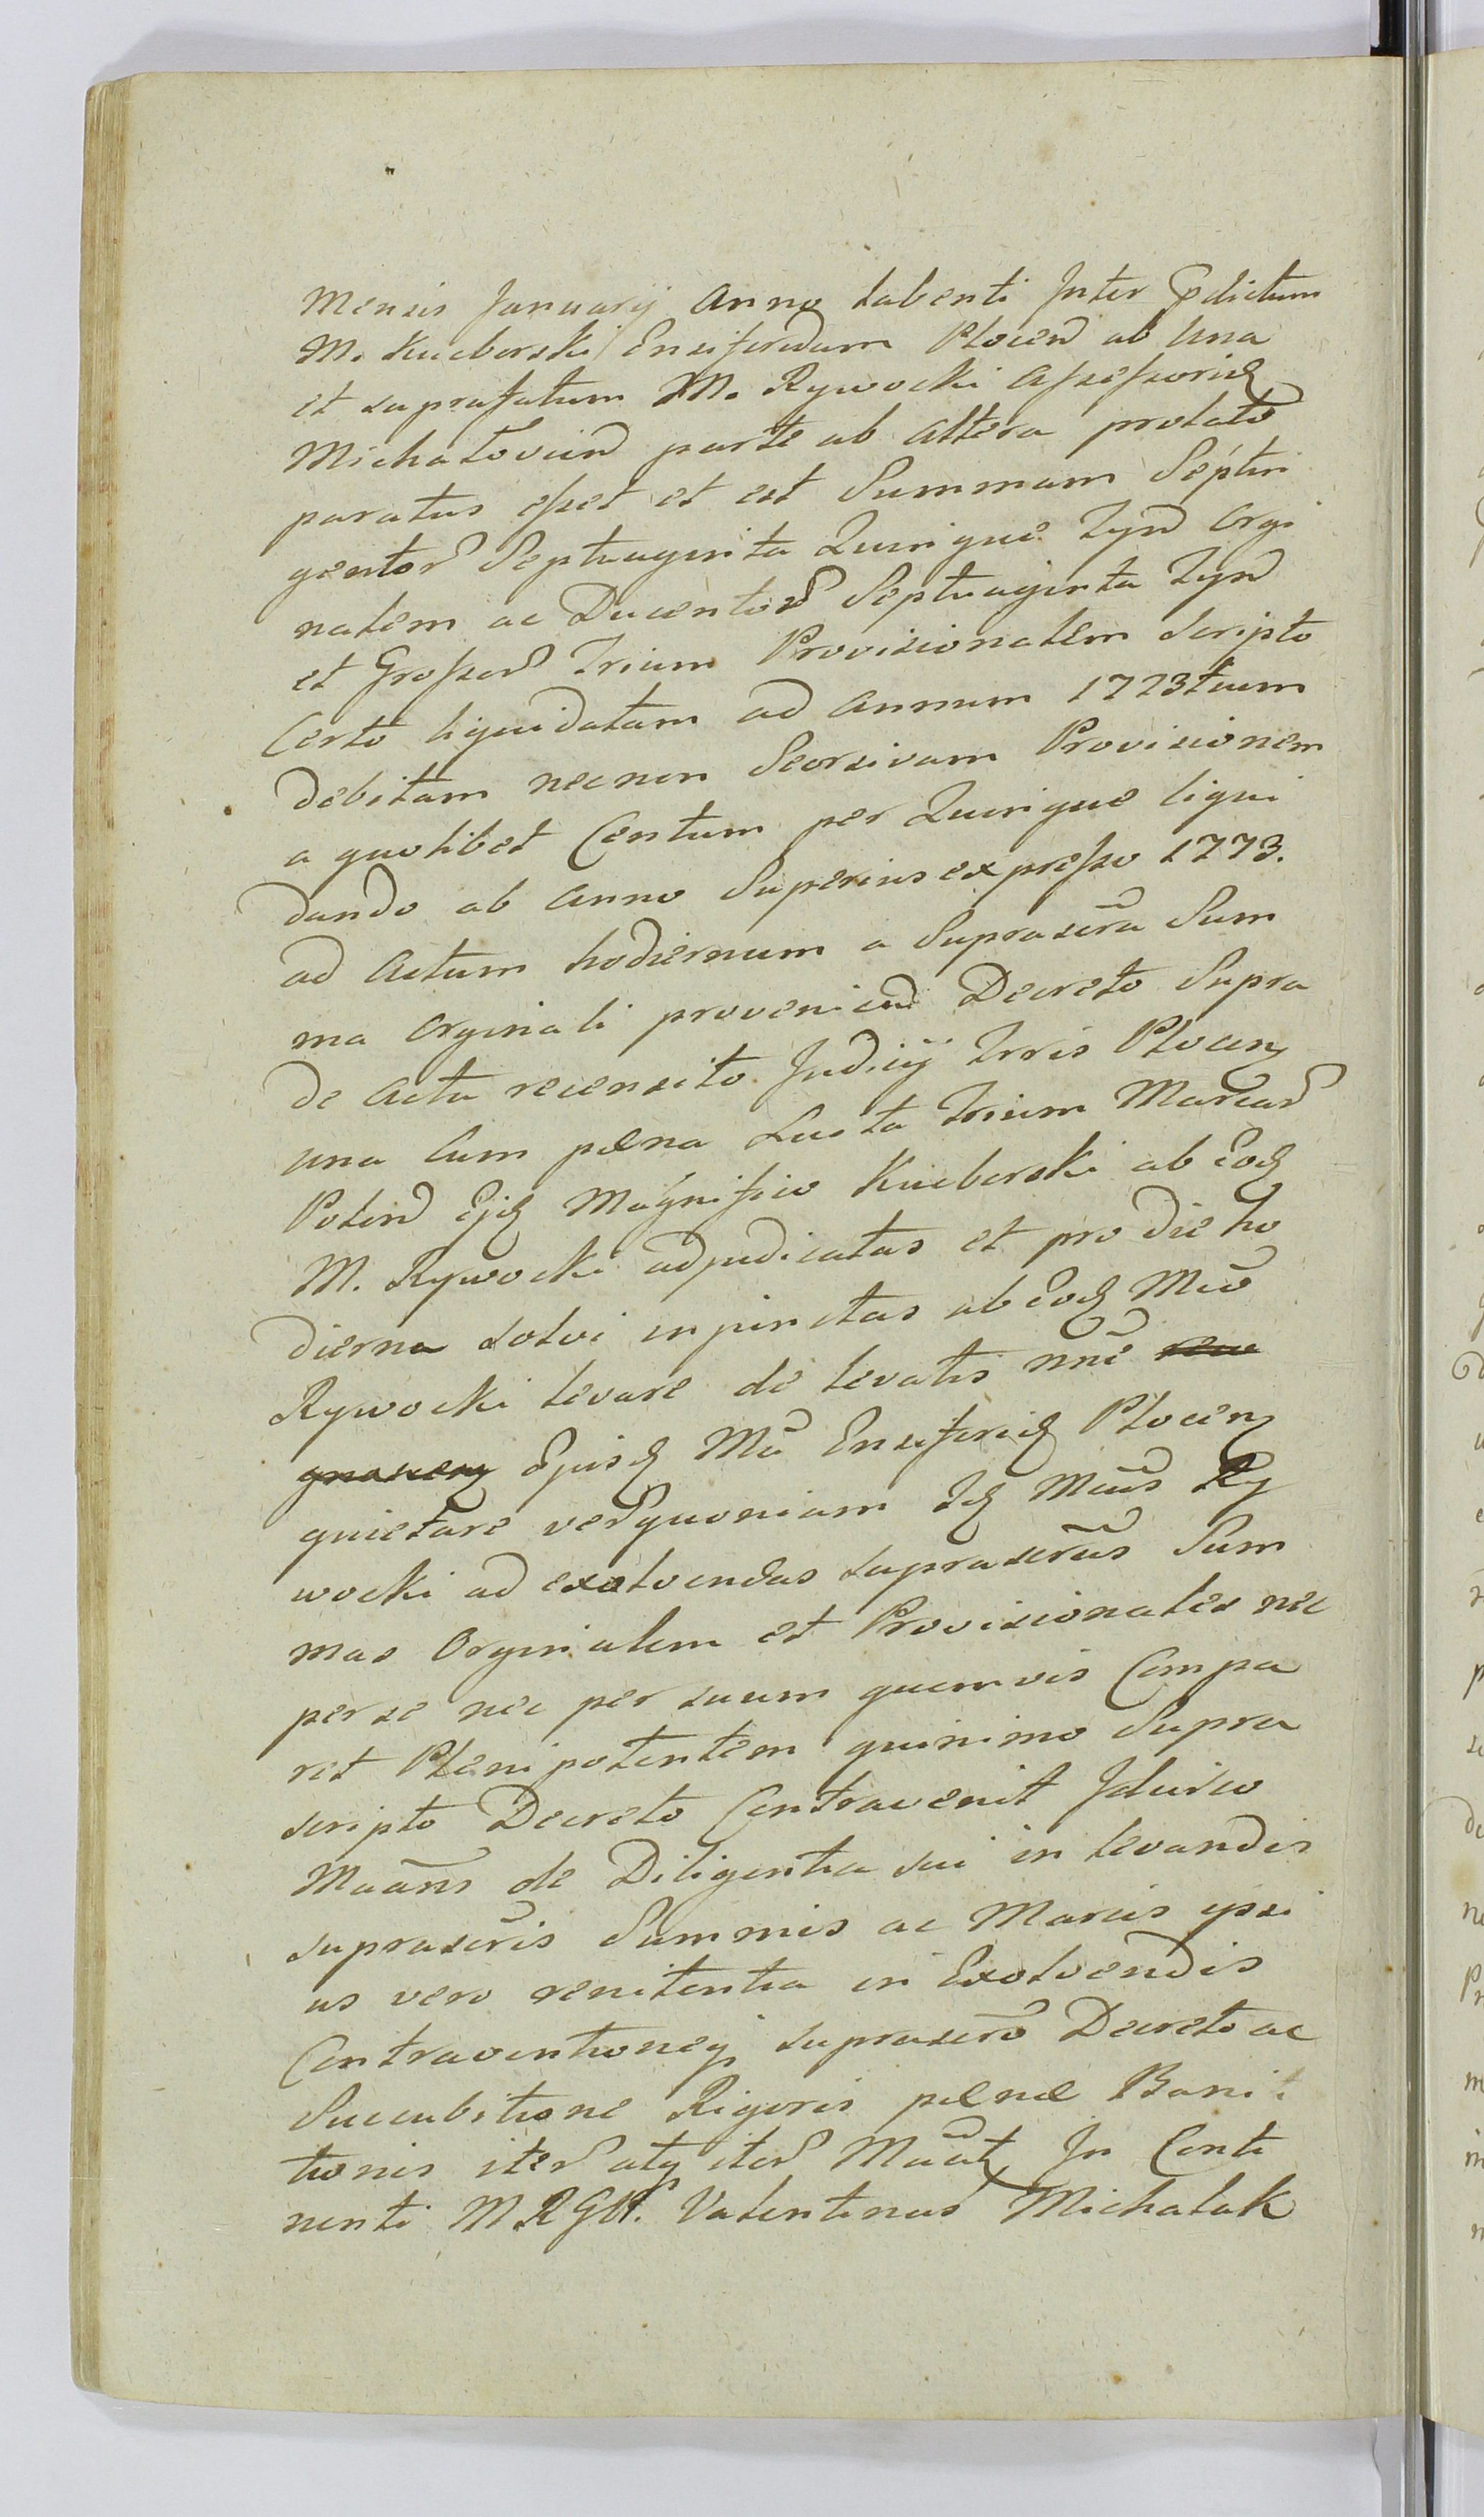 Mensis Januarij Anno labenti Inter Pdictum
M. Kucborski Ensiferidam Plocen ab Una
et suprafatum M. Rywocki Assessorid
Michałovien parte ab altera prolato
paratus esset et est Summam Septin
gentor Septuaginta Quinque Tyn Orgi
nalem ac Ducentor Septuaginta Tyn
et Grossor Trium Provisionalem Scripto
Certo liquidatam ad Annum 1773tium
debitam necnon Seorsivam Provisionem
a quolibet Centum per Quinque liqui
dando ab Anno Superius expresso 1773.
ad Actum hodiernum a Suprascra Sum
ma Orginali provenien Decreto Supra
de Actu recensito Judicij Trris Plocen
una Cum pæna Lucta Trium Marcar
Polon Ejd Magnifico Kucborski ab Eod
M. Rywocki adjudicatas et pro die ho
dierna solvi injunctas ab Eod Mco
Rywocki levare de levatis nne
Ejusd Mci Ensiferid Plocen
quietare ver quoniam Id Mcus Ry
wocki ad exolvendas suprascras Sum
mas Orginalem et Provisionales nec
per se nec per suum quemvis Compa
ret Plenipotentem quinimo Supra
scripto Decreto Contravenit Idcirco
Maans de Diligentia sui in levandis
suprascris Summis ac Marcis ipsi
us vero renitentia in Exolvendis
Contraventioneq suprascro Decreto ac
Succubitione Rigoris pænæ Bani
tionis iter atq iter Maat In Conti
nenti M R G M. Valentinus Michalak